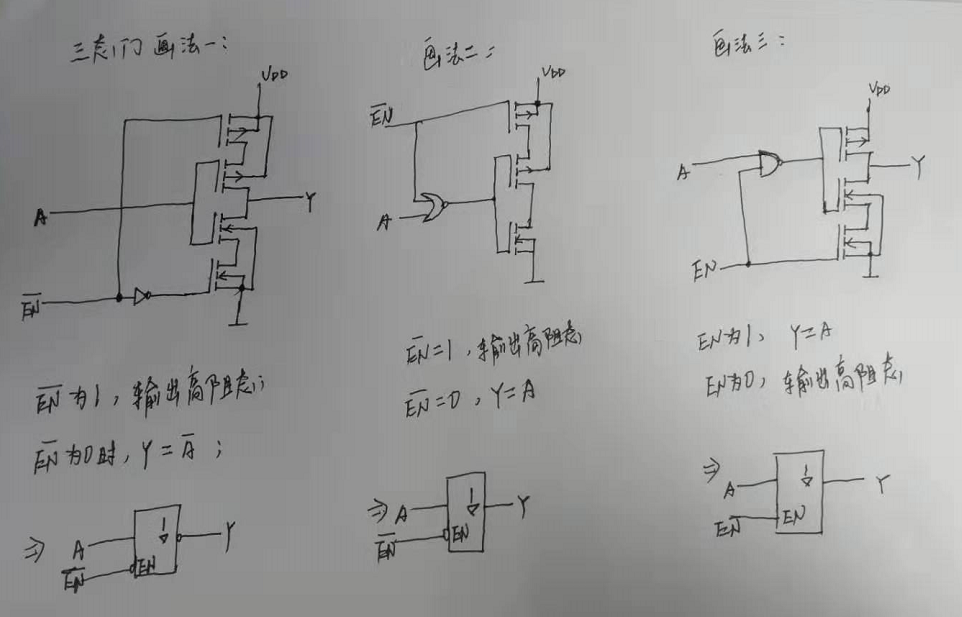 三态门画法一:
VDD
A
Y
E̅N̅
E̅N̅为1,输出高阻态;
E̅N̅为0时,Y=A̅;
⇒ A
Y
E̅N̅
EN
1
画法二:
VDD
E̅N̅
A
E̅N̅=1,输出高阻态
E̅N̅=0,Y=A
⇒ A
Y
E̅N̅
EN
1
画法三:
VDD
A
Y
EN
EN为1,Y=A
EN为0,输出高阻态
⇒ A
Y
EN
EN
1